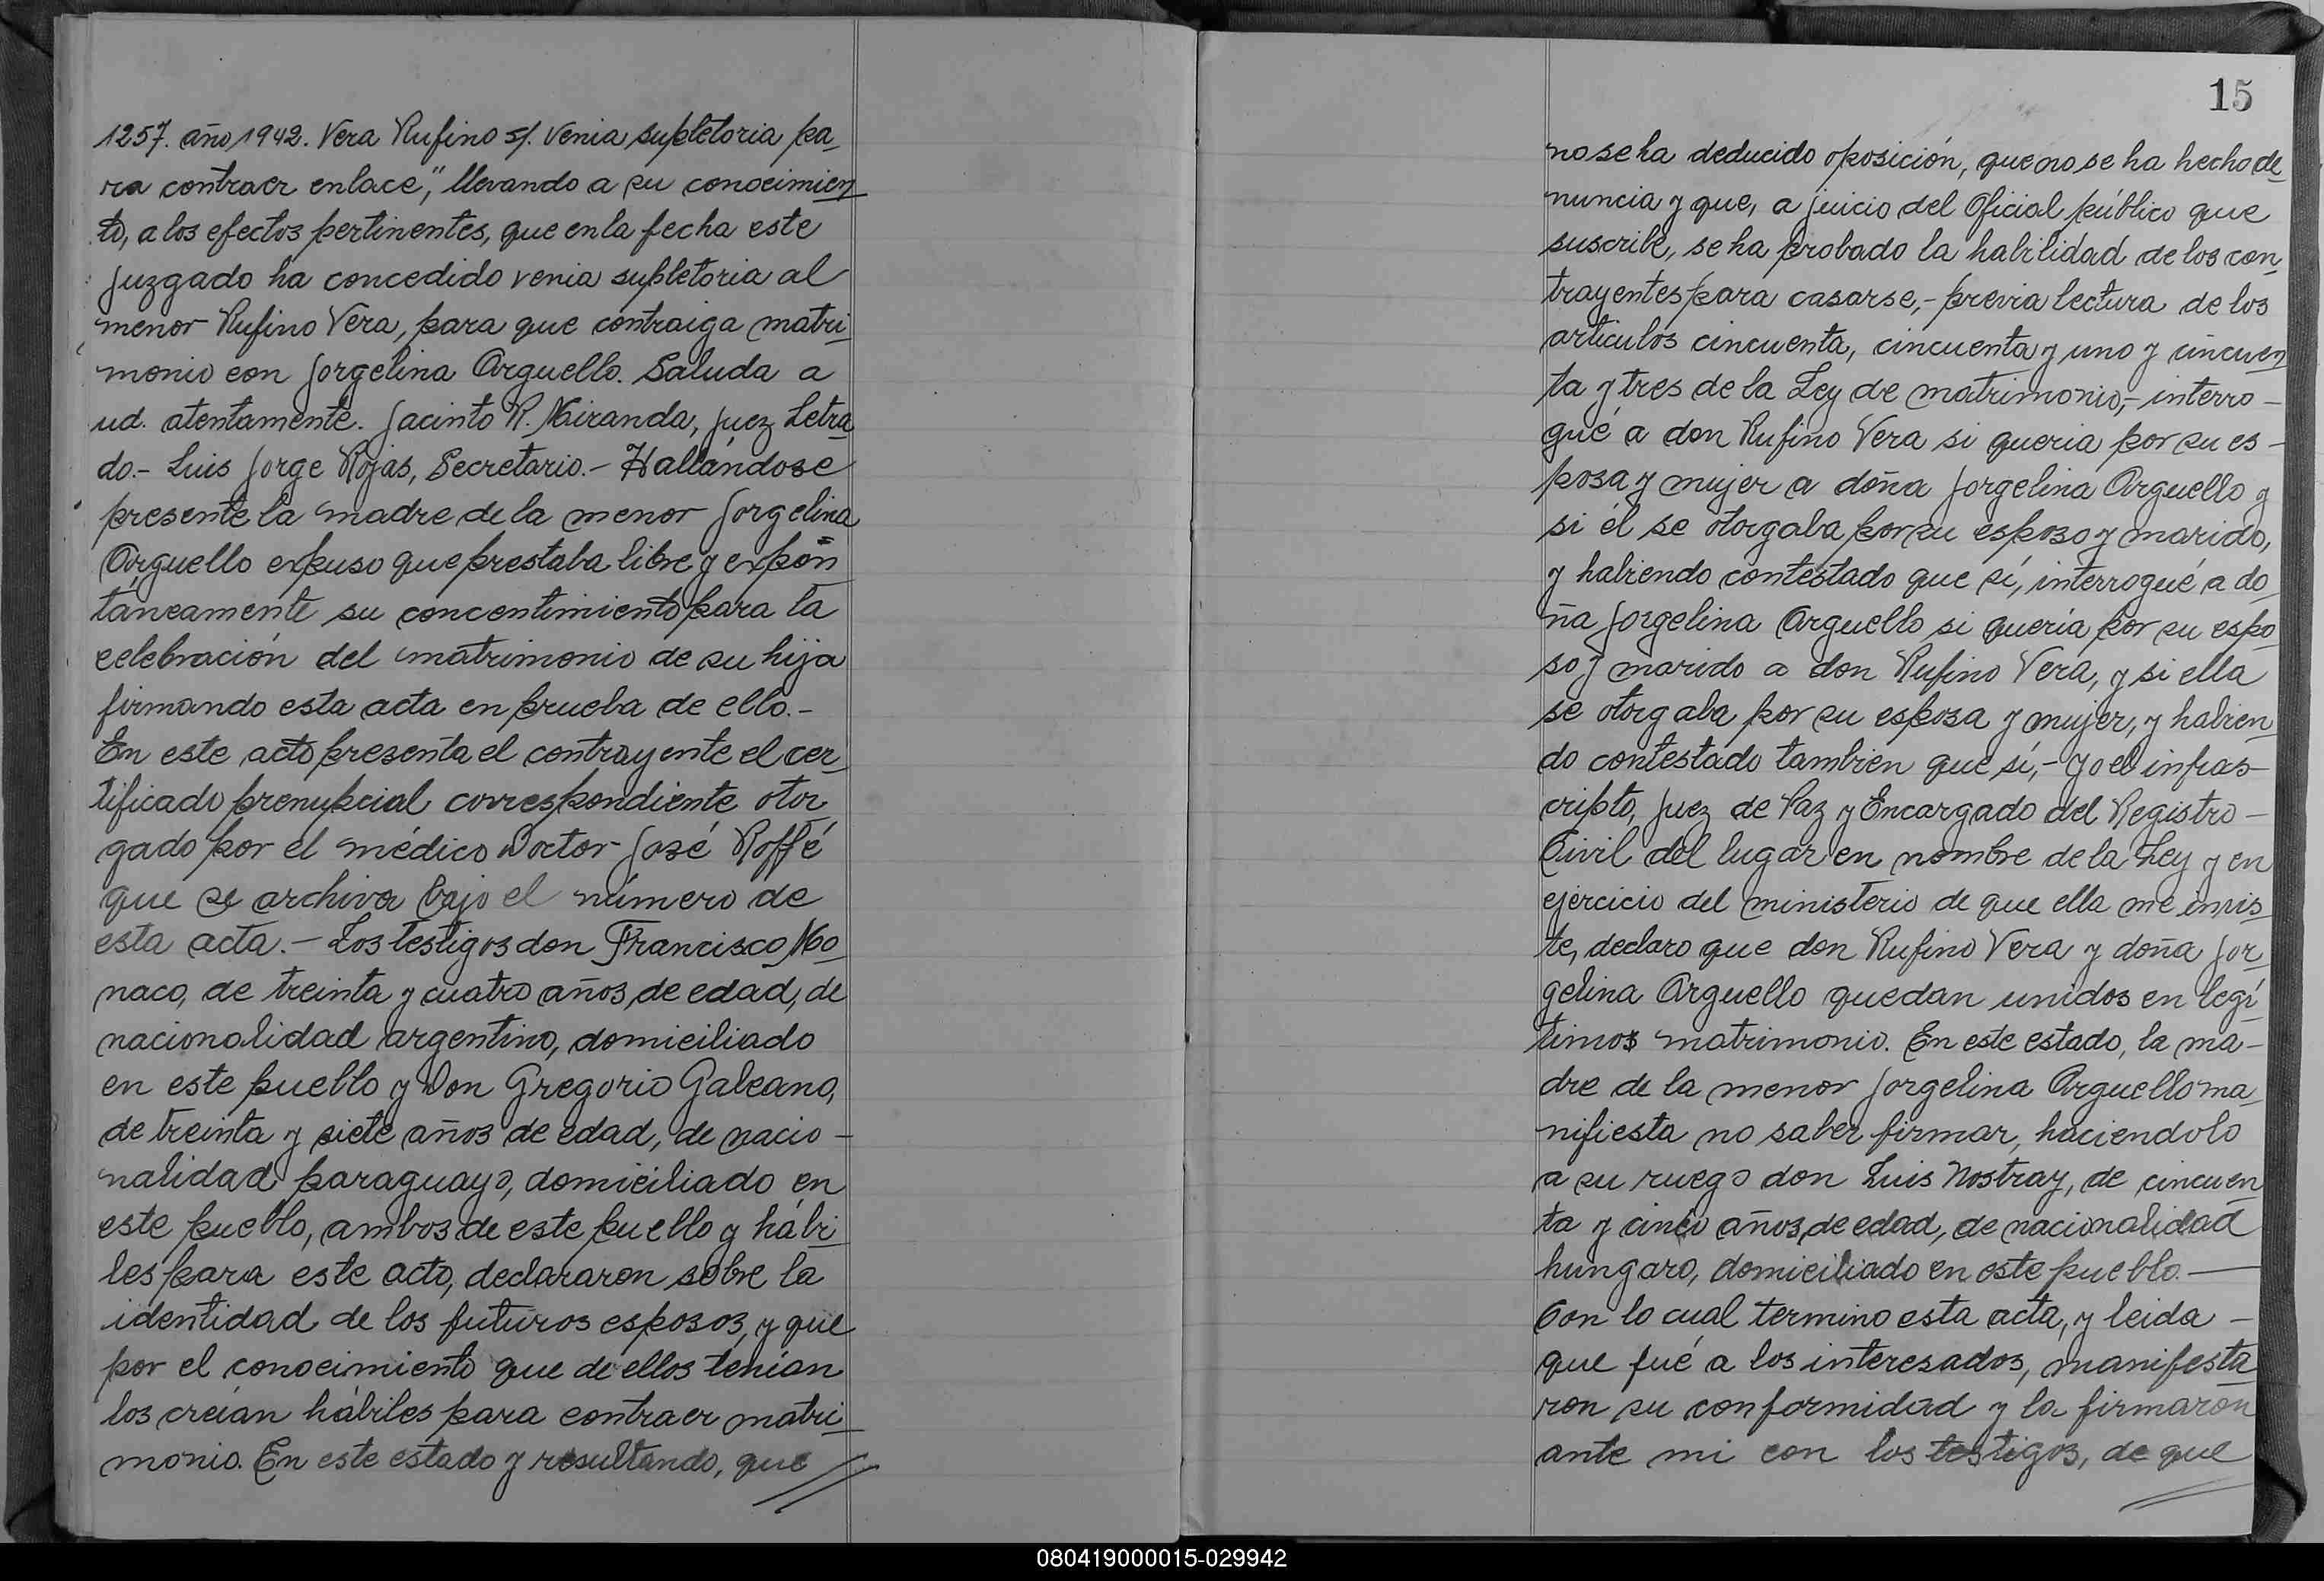 1257. año 1942. Vera Rufino s/. venia supletoria pa_
ra contraer enlace", llevando a su conocimien_
to, a los efectos pertinentes, que en la fecha este
juzgado ha concedido venia supletoria al
menor Rufino Vera, para que contraiga matri_
monio con Jorgelina Arguello. Saluda a
ud. atentamente. Jacinto R. Miranda, Juez Letra_
do.- Luis Jorge Rojas, Secretario.- Hallándose
presente la madre de la menor Jorgelina
Arguello expuso que prestaba libre y expon_
táneamente su concentimiento para la
celebración del matrimonio de su hija
firmando esta acta en prueba de ello.-
En este acto presenta el contrayente el cer_
tificado prenupcial correspondiente otor_
gado por el médico Doctor José Roffé
que se archiva bajo el número de
esta acta.- Los testigos don Francisco Mo_
naco, de treinta y cuatro años de edad, de
nacionalidad argentino, domiciliado
en este pueblo y Don Gregorio Galeano,
de treinta y siete años de edad, de nacio-
nalidad paraguayo, domiciliado en
este pueblo, ambos de este puello y hábi_
les para este acto, declararon sobre la
identidad de los futuros esposos, y que
por el conocimiento que de ellos tenían
los creían hábiles para contraer matri_
monio. En este estado y resultando, que //
15
no se ha deducido oposición, que no se ha hecho de_
nuncia y que, a juicio del Oficial público que
suscribe, se ha probado la habilidad de los con_
trayentes para casarse,- previa lectura de los
artículos cincuenta, cincuenta y uno y cincuen_
ta y tres de la Ley de matrimonio,- interro-
gué a don Rufino Vera si queria por su es-
posa y mujer a doña Jorgelina Arguello y
si él se otorgaba por su esposo y marido,
y habiendo contestado que sí, interrogué a do_
ña Jorgelina Arguello si quería por su espo_
so y marido a don Rufino Vera, y si ella
se otorgaba por su esposa y mujer, y habien_
do contestado tambien que sí,- yo el infras-
cripto, Juez de Paz y Encargado del Registro-
Civil del lugar en nombre de la Ley y en
ejercicio del ministerio de que ella me invis_
te, declaro que don Rufino Vera y doña Jor_
gelina Arguello quedan unidos en legí_
timos matrimonio. En este estado, la ma-
dre de la menor Jorgelina Arguello ma_
nifiesta no saber firmar, haciendolo
a su ruego don Luis Nostray, de cincuen_
ta y cinco años de edad, de nacionalidad
hungaro, domiciliado en este pueblo.-
Con lo cual termino esta acta, y leida -
que fué a los interesados, manifesta_
ron su conformidad y la firmaron
ante mi con los testigos, de que
080419000015-029942